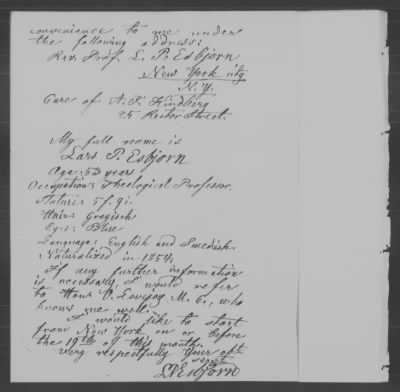 convenience to me under
the following address:
Rev. Prof. L. P. Esbjorn
New York city
N.Y.
Care of A. F. Kindberg
25 Rector Street.
My full name is
Lars P. Esbjorn
Age: 53 years
Occupation: Theological Professor.
Stature: 5 f. 9 i.
Hair: Grayisch
Eyes: Blue
Language: English and Swedish.
Naturalized in 1854.
If any further information
is necessary, I would refer
to Hon. O. Lovejoy M. C., who
knows me well.
I would like to start
from New York on or before
the 19th of this month.
Very respectfully Your obt
servt
LPEsbjorn